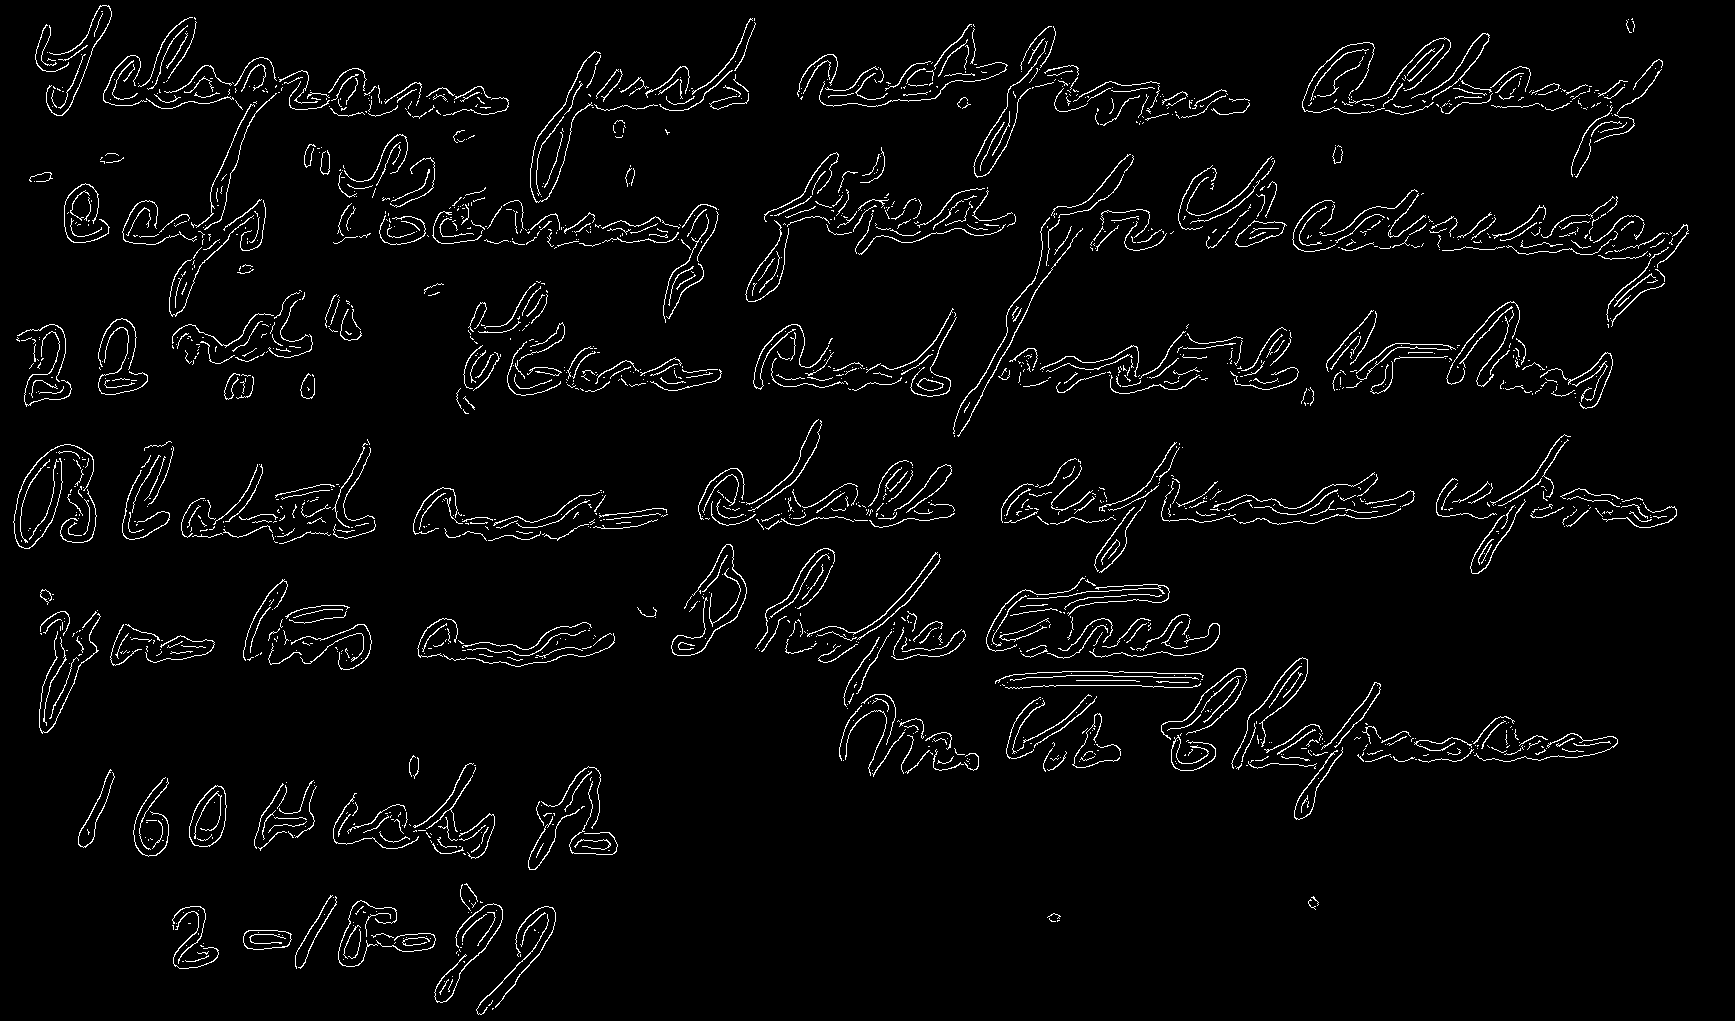 Telegram just recd. from Albany
says "Hearing fixed for Wednesday
22nd" Have sent postal. to Mrs
Blatch and shall depend upon
you two and I hope three
M. W. Chapman
160 Hicks St
2-15-99